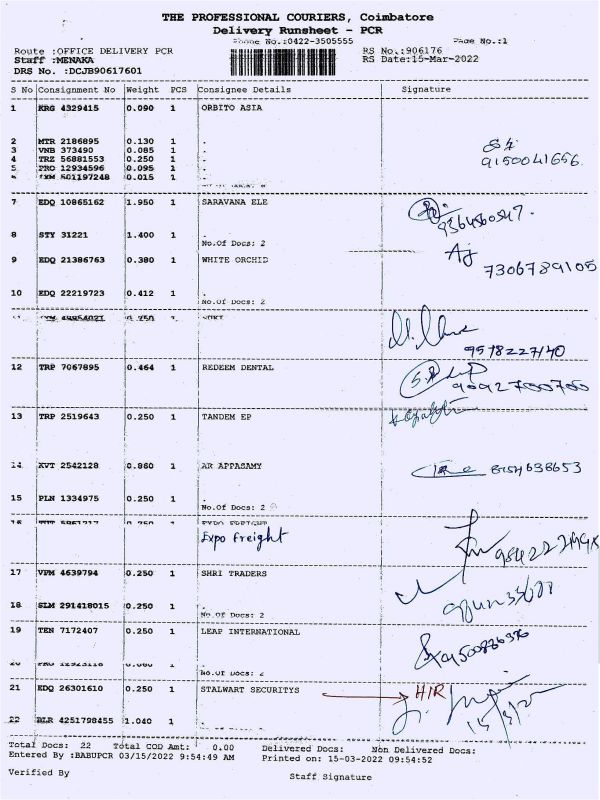 THE PROFESSIONAL COURIERS, Coimbatore
Delivery Runsheet - PCR
Phone No.:0422-3505555 Page No.:1
Route :OFFICE DELIVERY PCR RS No.:906176
Staff :MENAKA RS Date:15-Mar-2022
DRS No. :DCJB90617601
S No Consignment No Weight PCS Consignee Details Signature
1 KRG 4329415 0.090 1 ORBITO ASIA
2 MTR 2186895 0.130 1 .
3 VNB 373490 0.085 1 .
4 TRZ 56881553 0.250 1 .
5 PRO 12934596 0.095 1 .
501197248 0.015 1
9150041656
7 EDQ 10865162 1.950 1 SARAVANA ELE
9364560547.
8 STY 31221 1.400 1 .
No.Of Docs: 2
9 EDQ 21386763 0.380 1 WHITE ORCHID
7306789105
10 EDQ 22219723 0.412 1 .
No.Of Docs: 2
9578227140
12 TRP 7067895 0.464 1 REDEEM DENTAL
9092700700
13 TRP 2519643 0.250 1 TANDEM EP
14 KVT 2542128 0.860 1 AR APPASAMY
8154638653
15 PLN 1334975 0.250 1 .
No.Of Docs: 2
Expo Freight
17 VPM 4639794 0.250 1 SHRI TRADERS
18 SLM 291418015 0.250 1 .
No.Of Docs: 2
19 TEN 7172407 0.250 1 LEAP INTERNATIONAL
No.Of Docs: 2
21 EDQ 26301610 0.250 1 STALWART SECURITYS H/R
15/3/22
22 BLR 4251798455 1.040 1 .
Total Docs: 22 Total COD Amt: 0.00 Delivered Docs: Non Delivered Docs:
Entered By :BABUPCR 03/15/2022 9:54:49 AM Printed on: 15-03-2022 09:54:52
Verified By Staff Signature